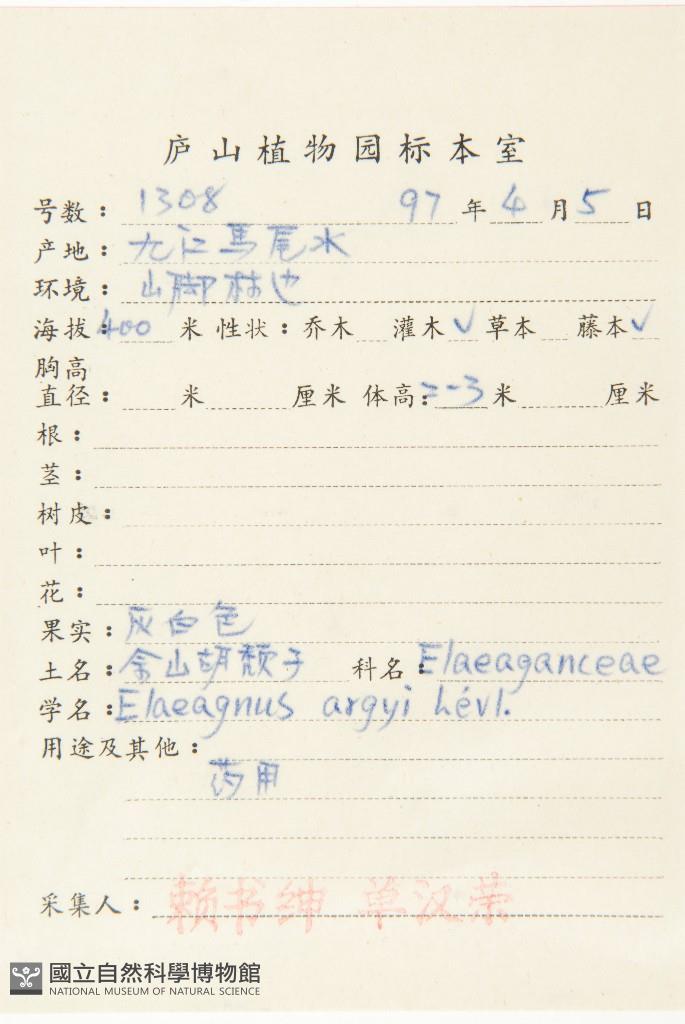 庐山植物园标本室
号数：1308 97年4月5日
产地：九江馬尾水
环境：山脚林边
海拔：400米 性状：乔木 灌木✓ 草本 藤本✓
胸高
直径： 米 厘米 体高：二-3米 厘米
根：
茎：
树皮：
叶：
花：
果实：灰白色
土名：佘山胡颓子 科名：Elaeaganceae
学名：Elaeagnus argyi Lévl.
用途及其他：
药用
采集人：赖书绅 单汉荣
國立自然科學博物館
NATIONAL MUSEUM OF NATURAL SCIENCE